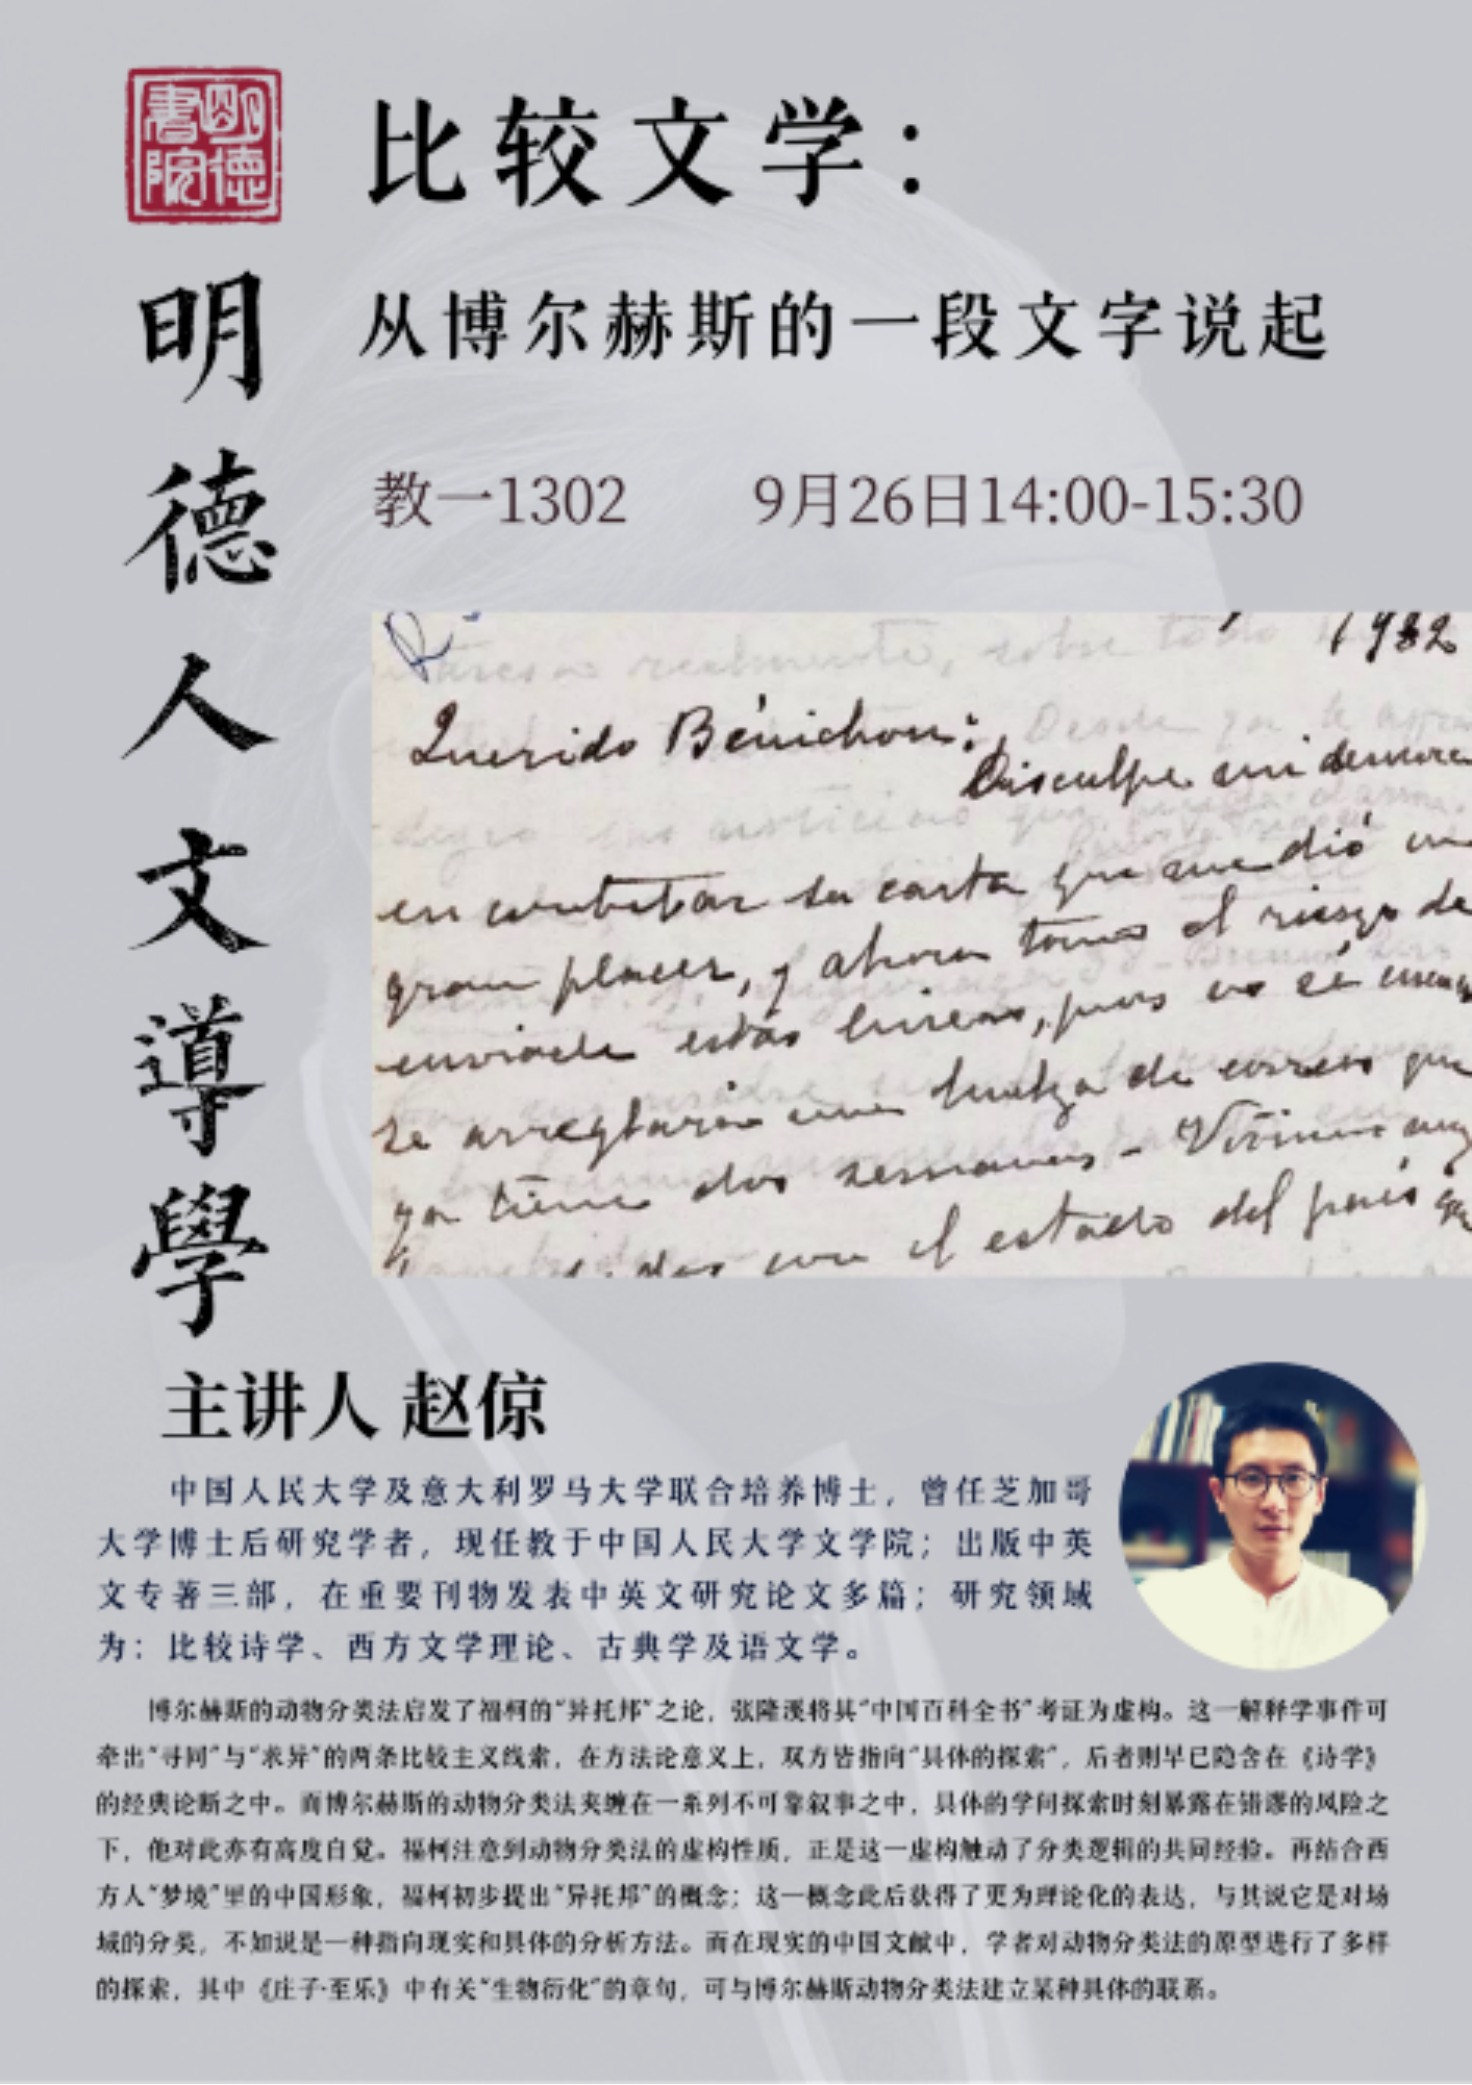 明德書院
明德人文導學
比较文学：
从博尔赫斯的一段文字说起
教一1302 9月26日14:00-15:30
1982
Querido Bénichou:
Disculpe mi demora
en contestar su carta que me dió un
gran placer, y ahora tomo el riesgo de
enviarle estas líneas, pues no sé cuando
se arreglará una huelga de correos que
ya tiene dos semanas - Vivimos muy
con el estado del país
主讲人 赵倞
中国人民大学及意大利罗马大学联合培养博士，曾任芝加哥
大学博士后研究学者，现任教于中国人民大学文学院；出版中英
文专著三部，在重要刊物发表中英文研究论文多篇；研究领域
为：比较诗学、西方文学理论、古典学及语文学。
博尔赫斯的动物分类法启发了福柯的“异托邦”之论，张隆溪将其“中国百科全书”考证为虚构。这一解释学事件可
牵出“寻同”与“求异”的两条比较主义线索，在方法论意义上，双方皆指向“具体的探索”，后者则早已隐含在《诗学》
的经典论断之中。而博尔赫斯的动物分类法夹缠在一系列不可靠叙事之中，具体的学问探索时刻暴露在错谬的风险之
下，他对此亦有高度自觉。福柯注意到动物分类法的虚构性质，正是这一虚构触动了分类逻辑的共同经验。再结合西
方人“梦境”里的中国形象，福柯初步提出“异托邦”的概念；这一概念此后获得了更为理论化的表达，与其说它是对场
域的分类，不如说是一种指向现实和具体的分析方法。而在现实的中国文献中，学者对动物分类法的原型进行了多样
的探索，其中《庄子·至乐》中有关“生物衍化”的章句，可与博尔赫斯动物分类法建立某种具体的联系。